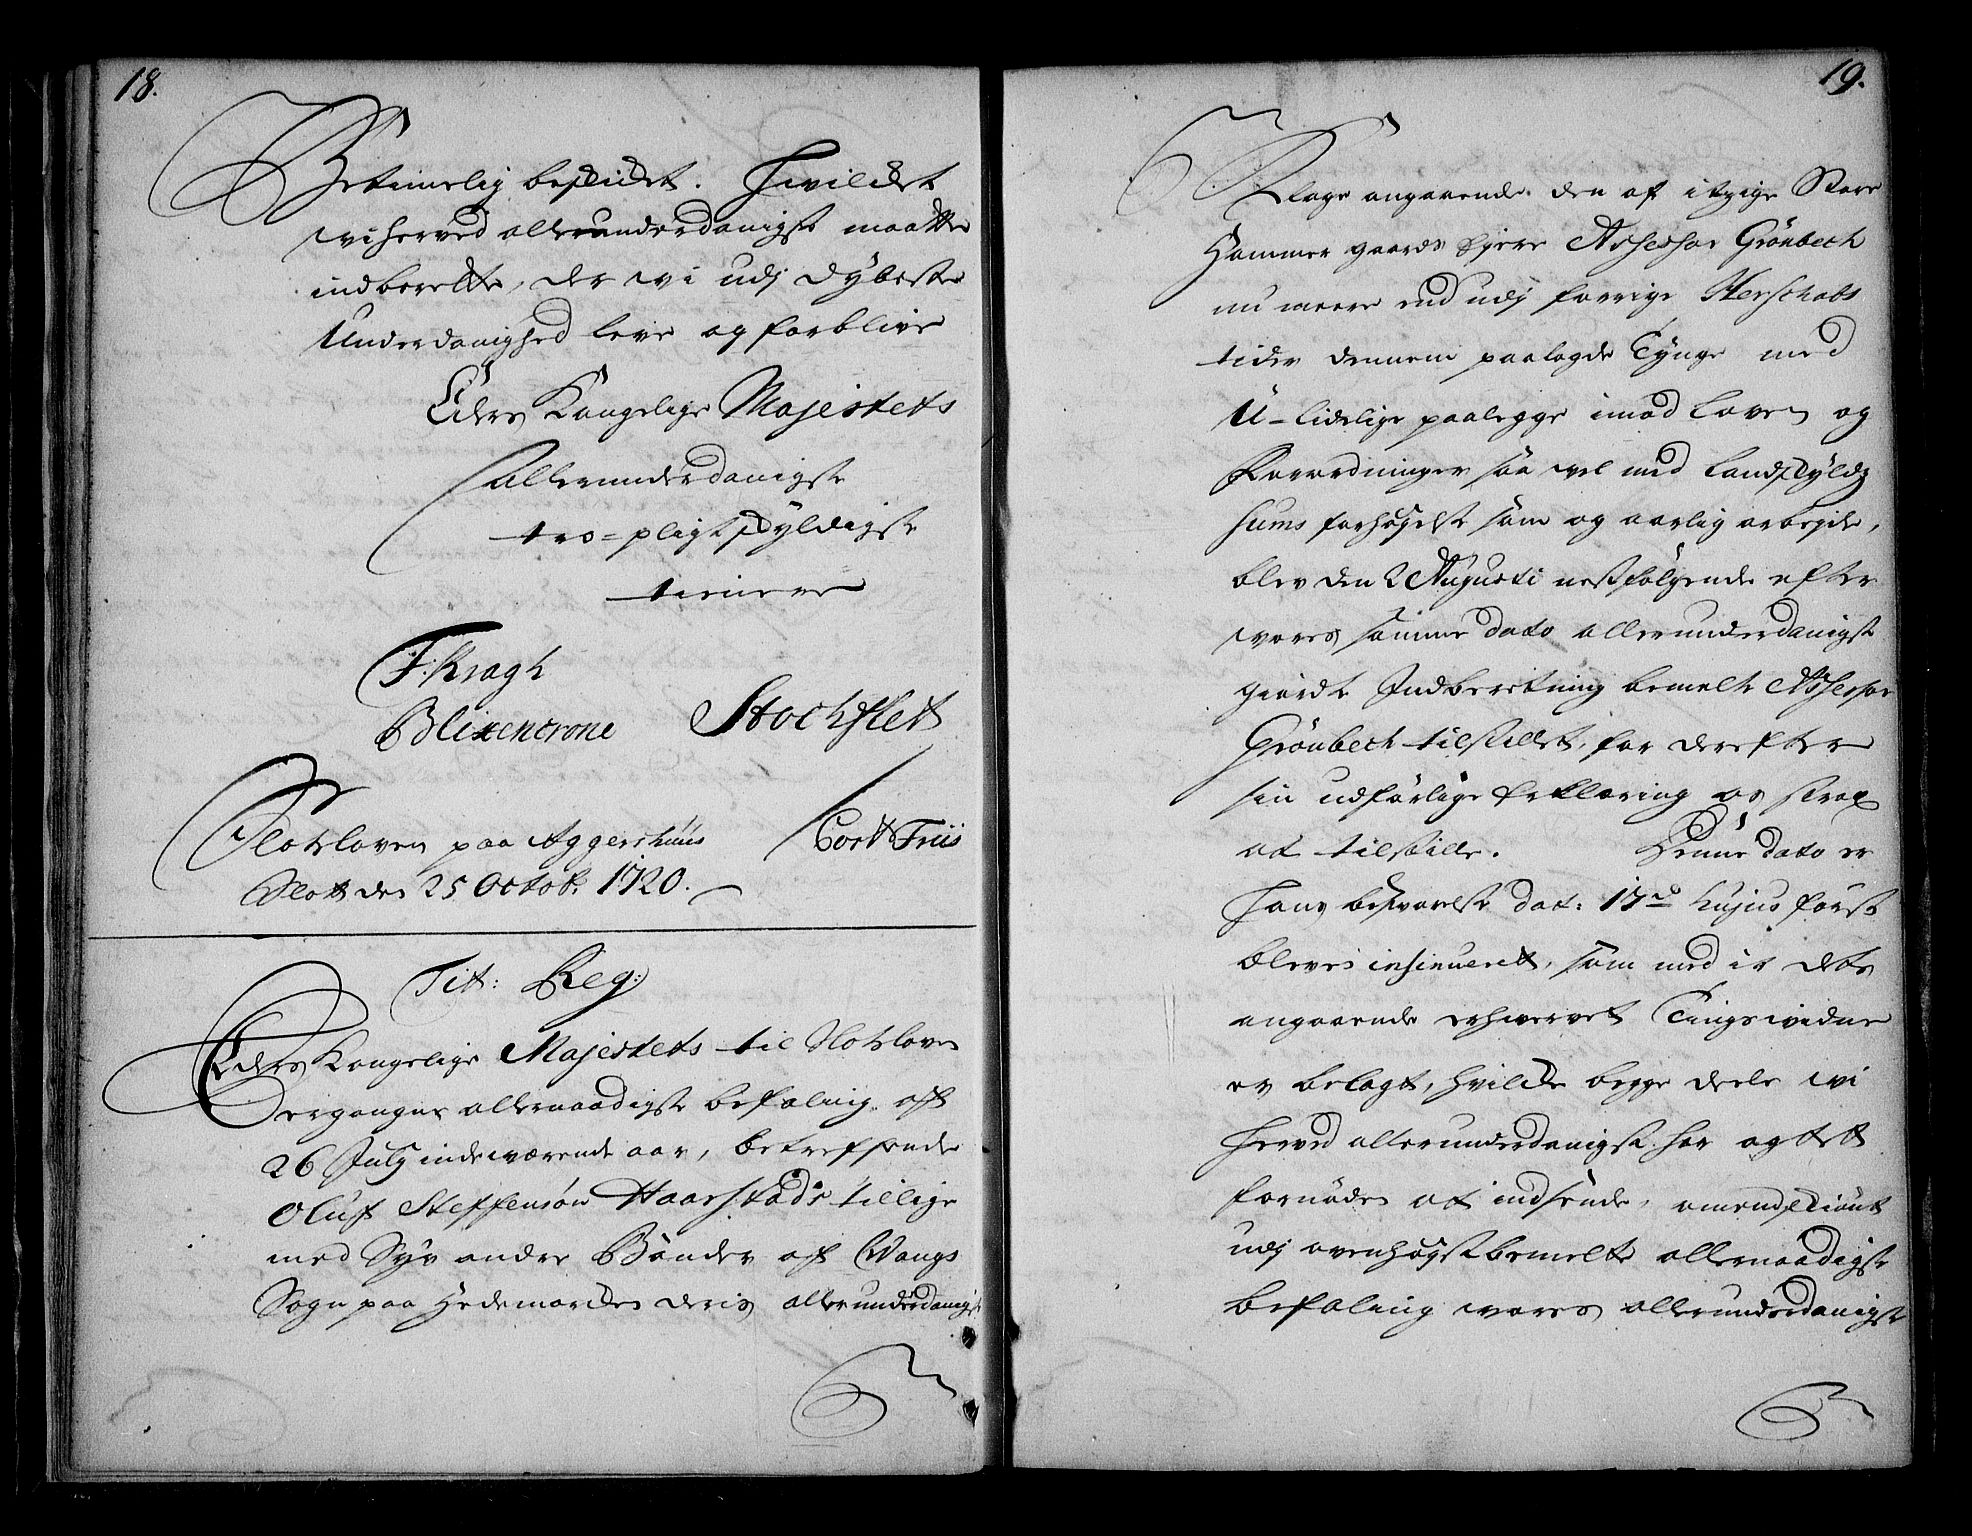 18.
Betimelig beskicket. Hvilcket
wi herved allerunderdanigst maatte
indberette, der wi udj dybeste
Underdanighed leve og forblive
Eders Kongelige Majestets
allerunderdanigste
troe=pligtskyldigste
tienere
F: Kragh
Blixencrone Stochflet
Slotzloven paa Aggershuus Cort Friis
Slott den 25 Octob. 1720.
Tit: Reg:
Eders Kongelige Majestets til Slotzloven
ergangne allernaadigste befaling aff
26 July indeværende aar, betreffende
Oluf Steffensøn Haarstads tillige
med Syv andre Bønder aff Wangs
Sogn paa Hedemarcken deris allerunderdanigst
19.
Klage angaaende den af itzige Store
Hammer gaards Ejere Assessor Grönbech
nu meere end udj forrige Herschabs
tider dennem paalagde Tynge med
U-lidelige paalegge imod Loven og
Forordninger saa vel med Landskylds
sums forhøgelse som og aarlig arbejde,
blev den 2 Augusti nestfølgende efter
vores samme dato allerunderdanigst
giorde Indberetning bemelte Assessor
Grönbech tilstillet, for derefter
sin udførlige Erklæring os strax
at tilstille. Denne dato er
hans besvarelse dat: 17de hujus først
bleven insinueret, som med it dets
angaaende erhvervet Tingswidne
er belagt, hvilcke begge deele wi
herved allerunderdanigst har agtet
fornøden at indsende, omendskiønt
udj ovenhøgstbemelte allernaadigste
befaling vores allerunderdanigste